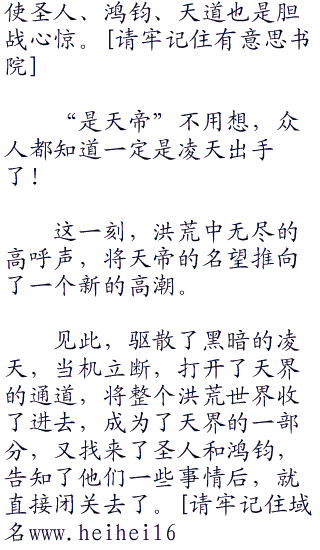 使圣人、鸿钧、天道也是胆
战心惊。[请牢记住有意思书
院]
“是天帝”不用想，众
人都知道一定是凌天出手
了！
这一刻，洪荒中无尽的
高呼声，将天帝的名望推向
了一个新的高潮。
见此，驱散了黑暗的凌
天，当机立断，打开了天界
的通道，将整个洪荒世界收
了进去，成为了天界的一部
分，又找来了圣人和鸿钧，
告知了他们一些事情后，就
直接闭关去了。[请牢记住域
名www.heihei16